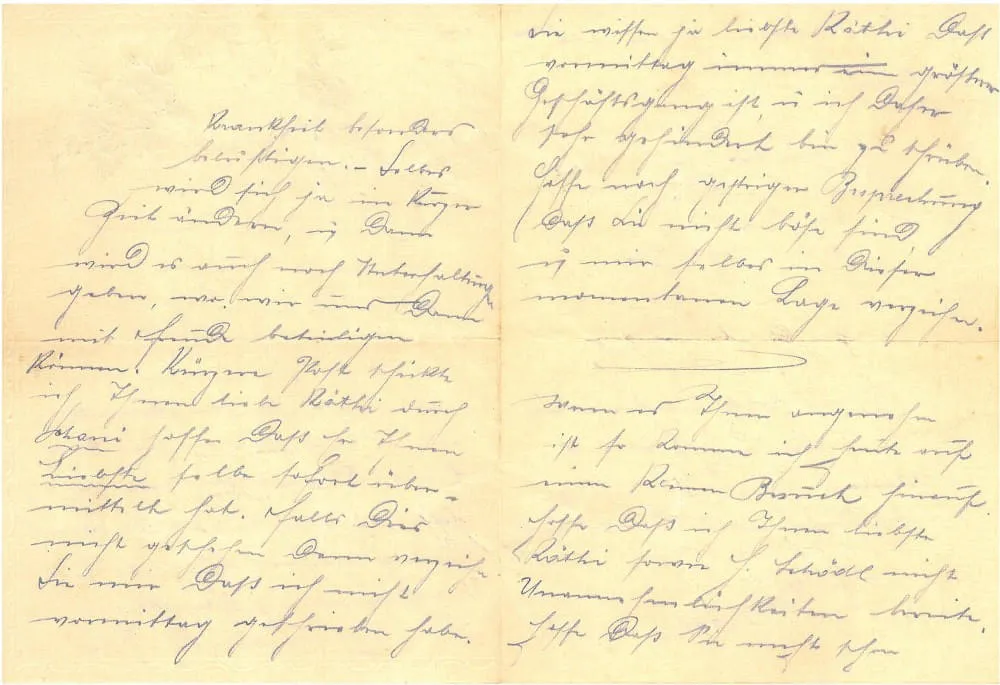 Krankheit besonders
belustigen. – Selbes
wird sich ja in kurzer
Zeit ändern, u. dann
wird es auch noch Unterhaltungen
geben, wo wir uns dann
mit Freude beteiligen
können. Kürzere Post schickte
ich Ihnen liebe Käthi durch
hoffe daß er Ihnen
Liebste selbe sofort über-
mittelt hat. Falls dies
nicht geschehen dann verzeihen
Sie mir daß ich nicht
vormittag geschrieben habe.
Sie wissen ja liebste Käthi daß
vormittag immer ein grösster
Geschäftsgang ist, u ich daher
sehr gehindert bin zu schreiben.
Hoffe nach gestriger Besprechung
daß Sie nicht böse sind,
u mir selbes in dieser
momentanen Lage verzeihen.
Wenn es Ihnen angenehm
ist so komme ich heute auf
einen kleinen Besuch hinauf.
hoffe daß ich Ihnen liebste
Käthi sowie H. nicht
Unannehmlichkeiten bereite.
hoffe daß Sie nicht schon